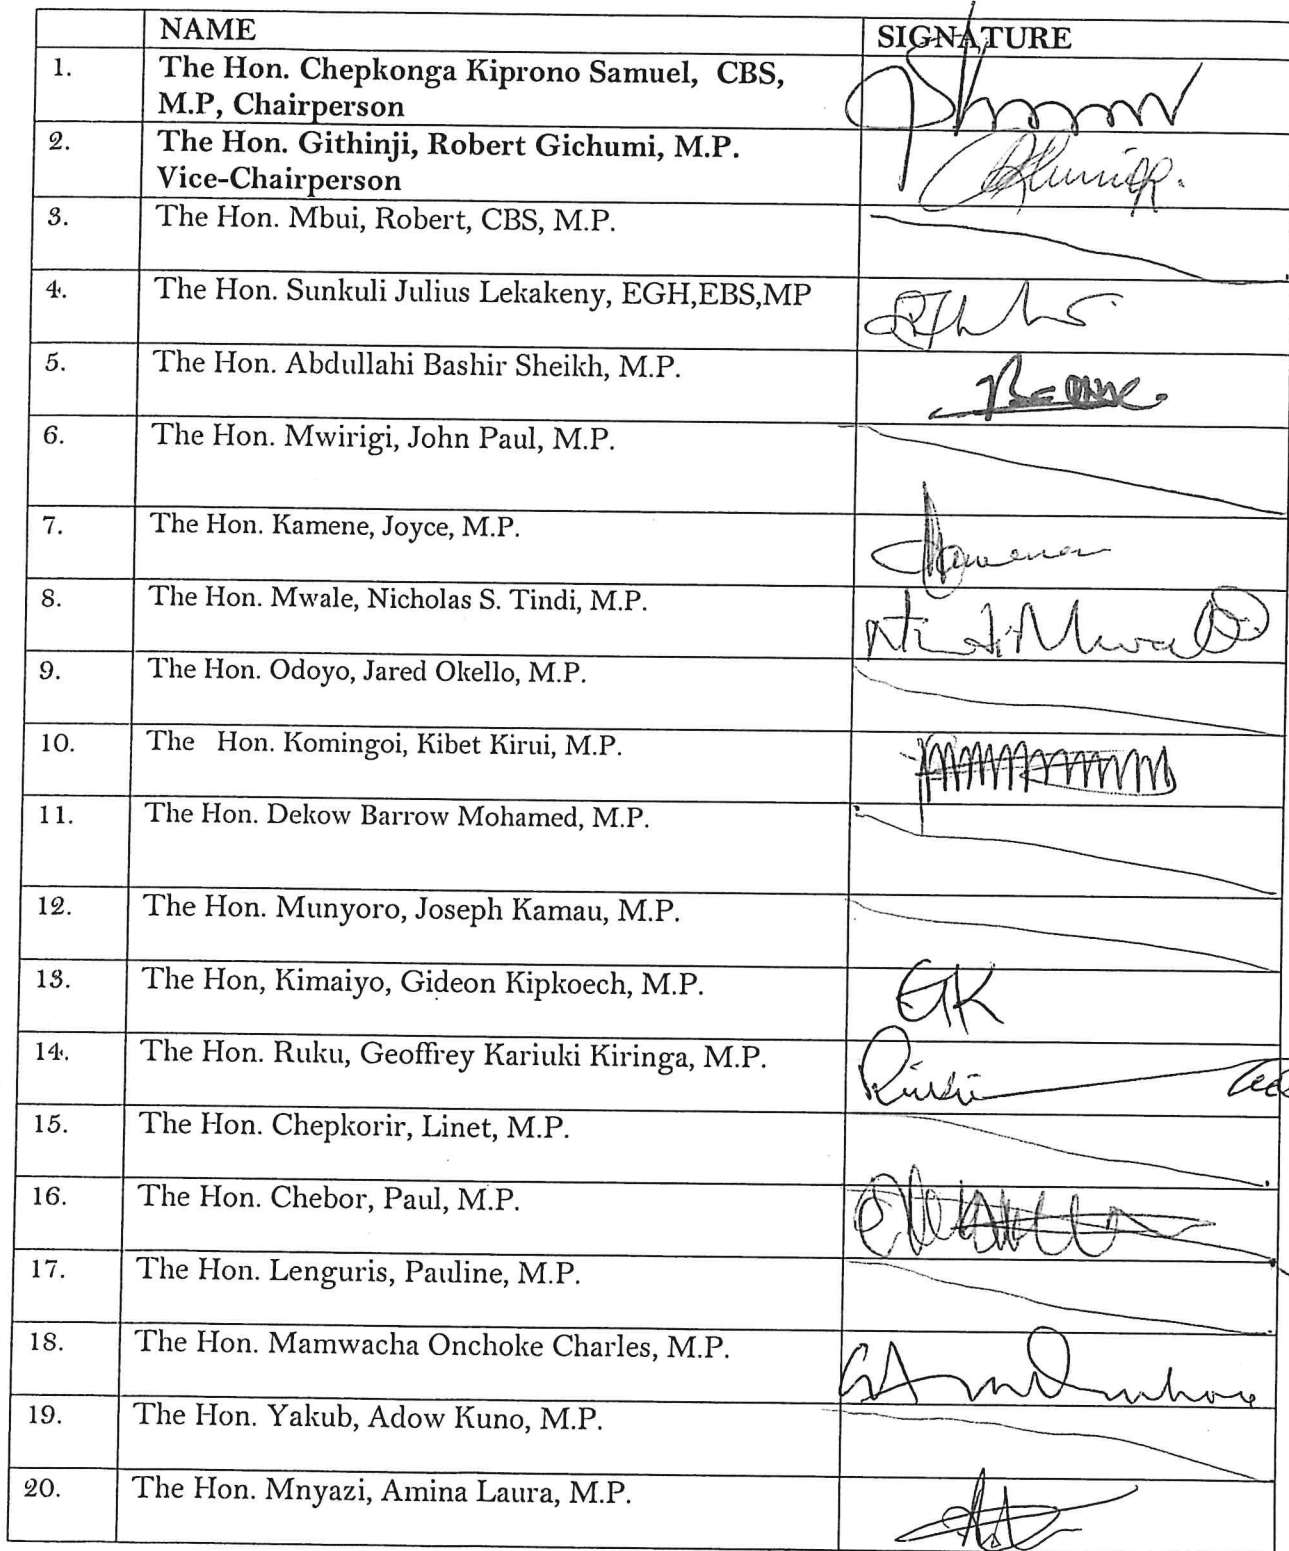 NAME SIGNATURE
1. The Hon. Chepkonga Kiprono Samuel, CBS,
M.P, Chairperson
2. The Hon. Githinji, Robert Gichumi, M.P.
Vice-Chairperson
3. The Hon. Mbui, Robert, CBS, M.P.
4. The Hon. Sunkuli Julius Lekakeny, EGH,EBS,MP
5. The Hon. Abdullahi Bashir Sheikh, M.P.
6. The Hon. Mwirigi, John Paul, M.P.
7. The Hon. Kamene, Joyce, M.P.
8. The Hon. Mwale, Nicholas S. Tindi, M.P.
9. The Hon. Odoyo, Jared Okello, M.P.
10. The Hon. Komingoi, Kibet Kirui, M.P.
11. The Hon. Dekow Barrow Mohamed, M.P.
12. The Hon. Munyoro, Joseph Kamau, M.P.
13. The Hon, Kimaiyo, Gideon Kipkoech, M.P. GK
14. The Hon. Ruku, Geoffrey Kariuki Kiringa, M.P.
15. The Hon. Chepkorir, Linet, M.P.
16. The Hon. Chebor, Paul, M.P.
17. The Hon. Lenguris, Pauline, M.P.
18. The Hon. Mamwacha Onchoke Charles, M.P.
19. The Hon. Yakub, Adow Kuno, M.P.
20. The Hon. Mnyazi, Amina Laura, M.P.